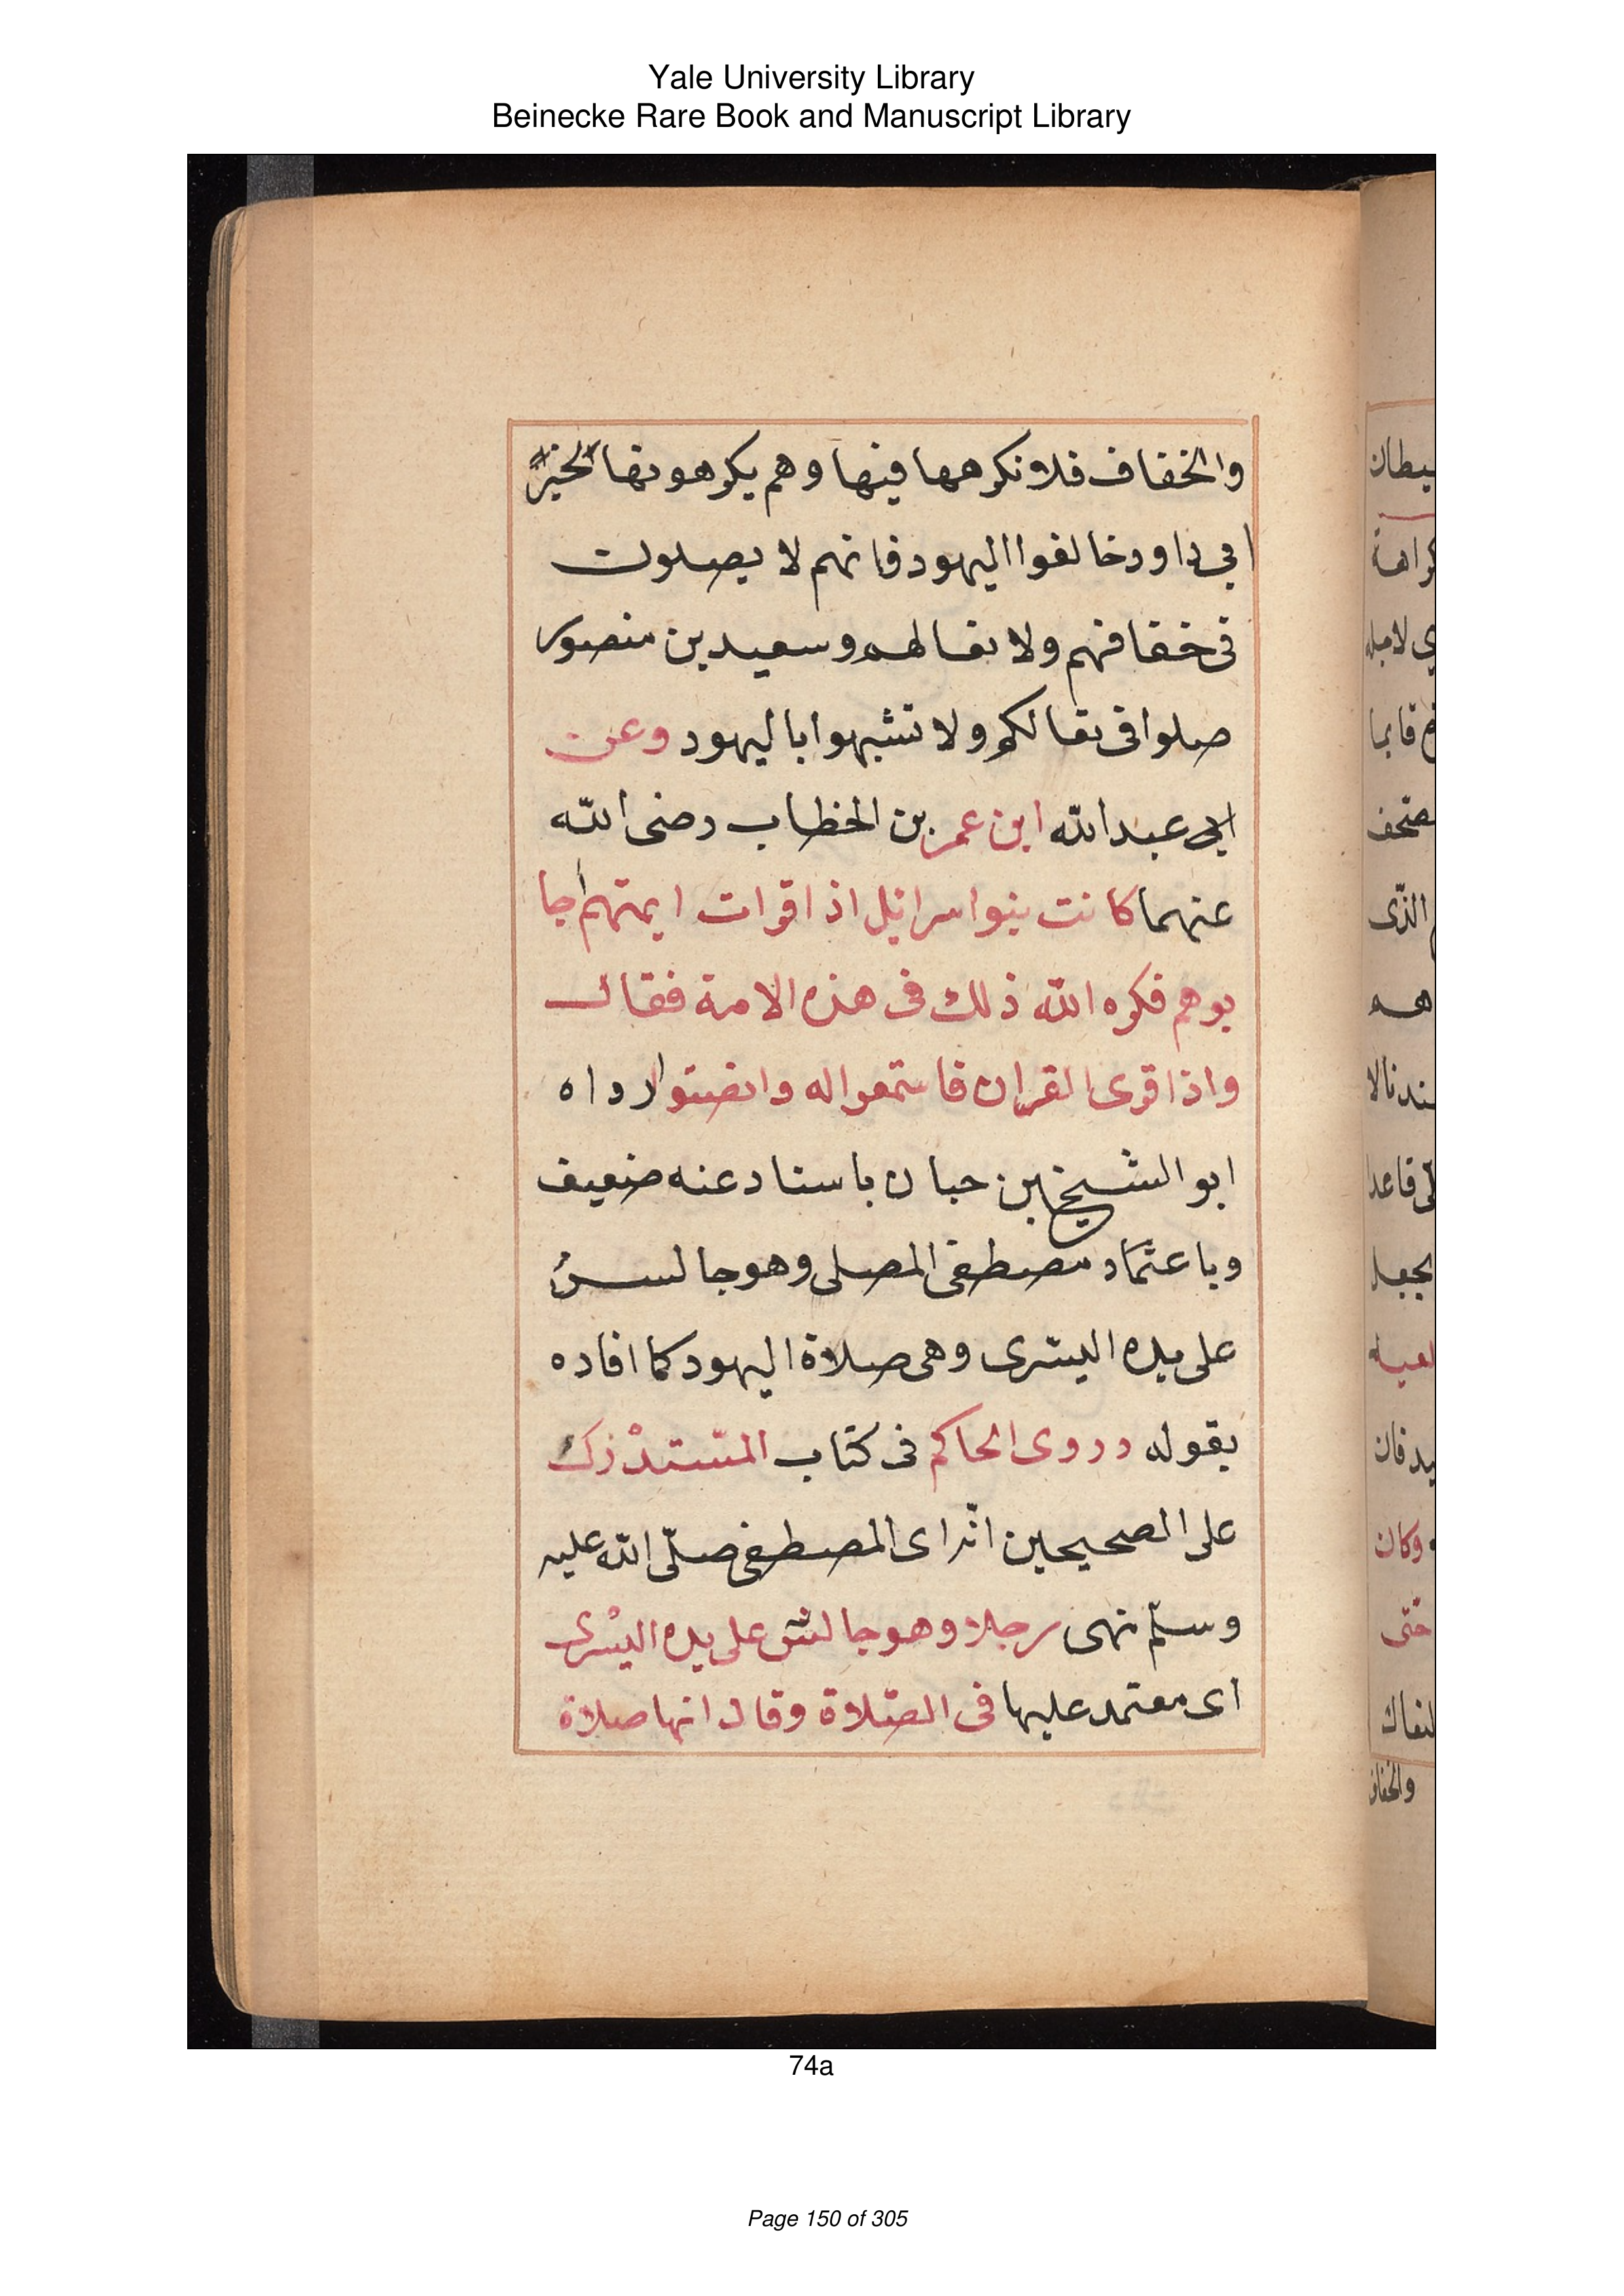 Yale University Library
Beinecke Rare Book and Manuscript Library
والخفاف فلا نكرهها فيها وهم يكرهونها لخبر
ابي داود خالفوا اليهود فانهم لا يصلون
في خفافهم ولا نعالهم وسعيد بن منصور
صلوا في نعالكم ولا تشبهوا باليهود وعن
ابي عبد الله ابن عمر بن الخطاب رضى الله
عنهما كانت بنوا سرائيل اذا قرات ايمتهم جا
بوهم فكره الله ذلك فى هذه الامة فقال
واذا قرى القران فاستمعوا له وانصتوا رواه
ابو الشيخ بن حبان باسناد عنه ضعيف
وباعتماد مصطفى المصلى وهو جالس
على يده اليسرى وهى صلاة اليهود كما افاده
بقوله وروى الحاكم فى كتاب المستدرك
على الصحيحين ان المصطفى صلّى الله عليه
وسلّم نهى رجلا وهو جالس على يده اليسرى
اى معتمد عليها فى الصّلاة وقال انها صلاة
يطان
قايما
الذّى
قاعدا
يجعل
يد فان
وكان
حتّى
والخفاف
74a
Page 150 of 305